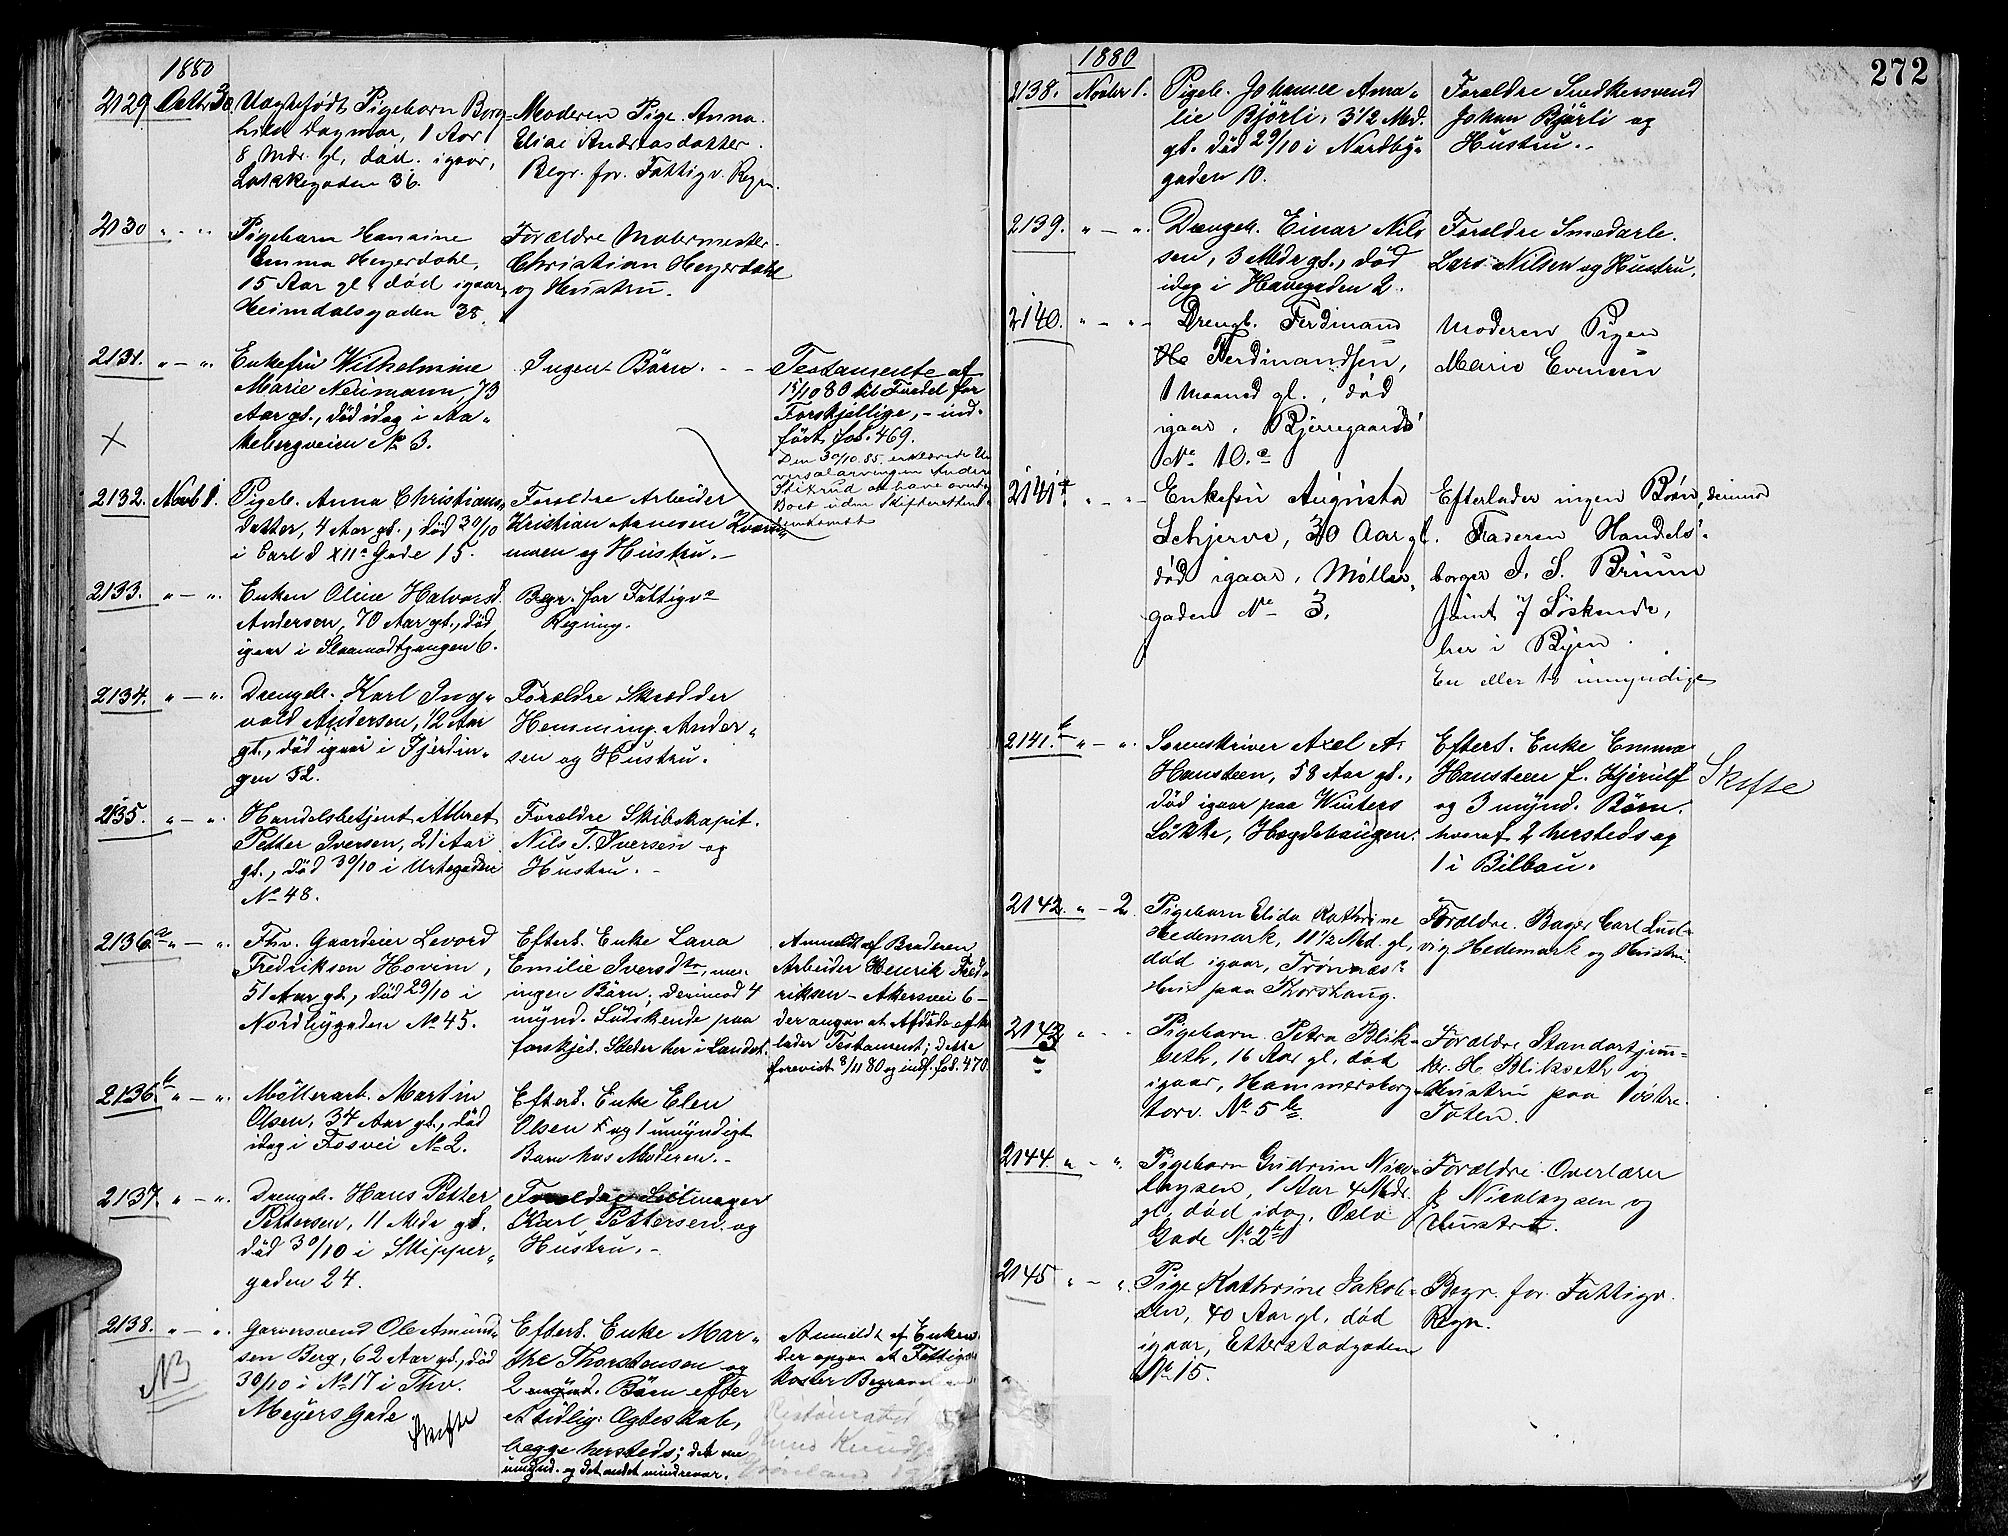 1880
2129. Octbr 30. Uægtefødt Pigebarn Borg-
hild Dagmar, 1 Aar
8 Mdr. gl. død. igaar,
Løkkegaden 36.
Moderen Pige. Anna.
Elise Andreasdatter.
Begr. for. Fattigv. Regn.
2130 " - " Pigebarn Hansine
Emma Heyerdahl,
15 Aar gl. død igaar,
Heimdalsgaden 38.
Forældre Malermester
Christian Heyerdahl
og Hustru.
2131. " - " Enkefru Wilhelmine
Marie Neumann, 73
Aar gl., død idag i Aa-
kebergveien No 3.
X
Ingen Börn. - -
Testamente af
15/10 80 til Fordel for
Forskjellige, - ind-
ført fol. 469.
Den 30/10. 85. erklærede Uni-
versalarvingen Anders
Stixrud at have overt.
Boet uden Skifterettens
2132. Novb 1. Pigeb. Anna Christians-
datter, 4 Aar gl., død 30/10
i Carl d XIIs Gade 15.
Forældre Arbeider
Kristian Arnesen Kværn-
moen og Hustru. -
2133. " - " Enken Oline Halvorsd.
Andersen, 70 Aar gl., død
igaar i Slaamodtgangen 6.
Begr. for Fattigvs
Regning.
2134. " - " Drengeb. Karl Ing-
vald Andersen, 1/2 Aar
gl., død igaar i Fjerdin-
gen 52.
Forældre Skrædder
Hemming Ander-
sen og Hustru.
2135. " - " Handelsbetjent Albert
Petter Iversen, 21 Aar
gl., død 30/10 i Urtegaden
No 48.
Forældre Skibskapit.
Nils T. Iversen og
Hustru. -
2136.a " - " Fhv. Gaardeier Levord
Fredriksen Hovim,
51 Aar gl., død 29/10 i
Nordbygaden No 45.
Efterl. Enke Lava
Emilie Iversdtr, men
ingen Börn; derimod 4
mynd. Södskende paa
forskjel. Steder her i Landet.
Anmeldt af Broderen
Arbeider Henrik Fred-
riksen - Akersvei 6 -
der angav at Afdøde efter-
lader Testament; dette
forevist 8/11 80 og indf. fol. 470.
2136.b " - " Møllerarb. Martin
Olsen, 34 Aar gl., død
idag i Fosvei No 2.
Efterl. Enke Elen
Olsen og 1 umyndigt
Barn hos Moderen. -
2137. " - " Drengeb. Hans Petter
Pettersen, 11 Mdr gl.
død 30/10 i Skipper-
gaden 24.
Forældre Seilmager
Karl Pettersen og
Hustru. -
2138. " - " Garversvend Ole Amund-
sen Berg, 62 Aar gl., død
30/10 i No 17 i Thv.
Meyers Gade.
NB
Skifte
Efterl. Enke Mar-
the Thorstensen og
2 mynd. Börn efter
et tidlig: Ægteskab,
begge hersteds; det ene
umynd. og det andet mindreaar.
Anmeldt af Enken
der opgav at Fattigv.
koster Begravel
Knud Knuds
Grønland
272
1880
2138. Novber 1. Pigeb. Johanne Ama-
lie Bjørli, 3 1/2 Md.
gl. død 29/10 i Nordby-
gaden 10.
Forældre Snedkersvend
Johan Bjørli og
Hustru. -
2139. " - " Drengeb. Einar Nils
sen, 3 Mdr gl., død
idag i Havegaden 2.
Forældre Smedarb.
Lars Nilsen og Hustru.
2140. " - " Drengb. Ferdinand
Ferdinandsen,
1 Maaned gl., død
igaar, Bjerregaards'
No 10.c
Moderen Pigen
Marie Evensen
2141a " - " Enkefru Augusta
Schjerve, 30 Aar gl.
død igaar, Møller-
gaden No 3.
Efterlader ingen Børn, derimod
Faderen Handels-
borger J. S. Bruun
samt 7 Søskende,
her i Byen.
En eller to umyndige
2141.b " - " Sorenskriver Axel A.
Hansteen, 58 Aar gl.,
død igaar paa Winters
Løkke, Hægdehaugen.
Efterl. Enke Emma
Hansteen f. Kjerulf
og 3 mynd. Börn.
hvoraf 2 hersteds og
1 i Bilbau.
Skifte
2142. " - 2. Pigebarn Elida Kathrine
Hedemark, 11 1/2 Md. gl.
død igaar, Trönnæs's
Hus paa Thorshaug.
Forældre. Bager Carl Lud-
vig Hedemark og Hustru
2143 " - " Pigebarn. Petra Blik-
seth, 16 Aar gl, død
igaar, Hammersborg-
torv. No 5 b
Forældre Standartjun-
ker. H. Blikseth og
Hustru paa Vøstre
Toten.
2144. " - " Pigebarn Gudrun Nico-
laysen, 1 Aar 4 Mdr.
gl, død idag, Oslo
Gade No 2b
Forældre: Overlærer
Nicolaysen og
Hustru.
2145 " - " Pige Kathrine Jakob-
sen, 40 Aar gl, død
igaar, Etterstadgaden
No 15.
Begr. for Fattigv.
Regn.